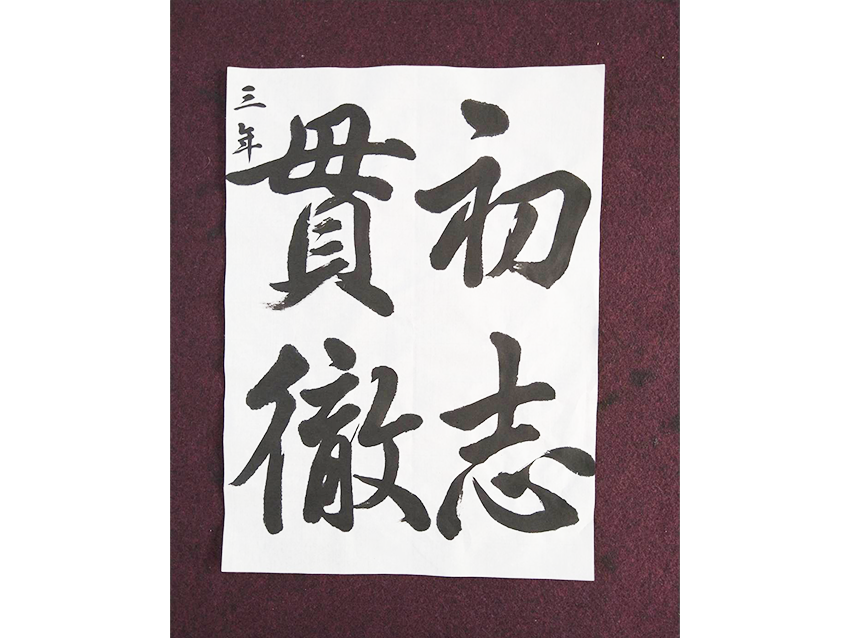 初志
貫徹
三年